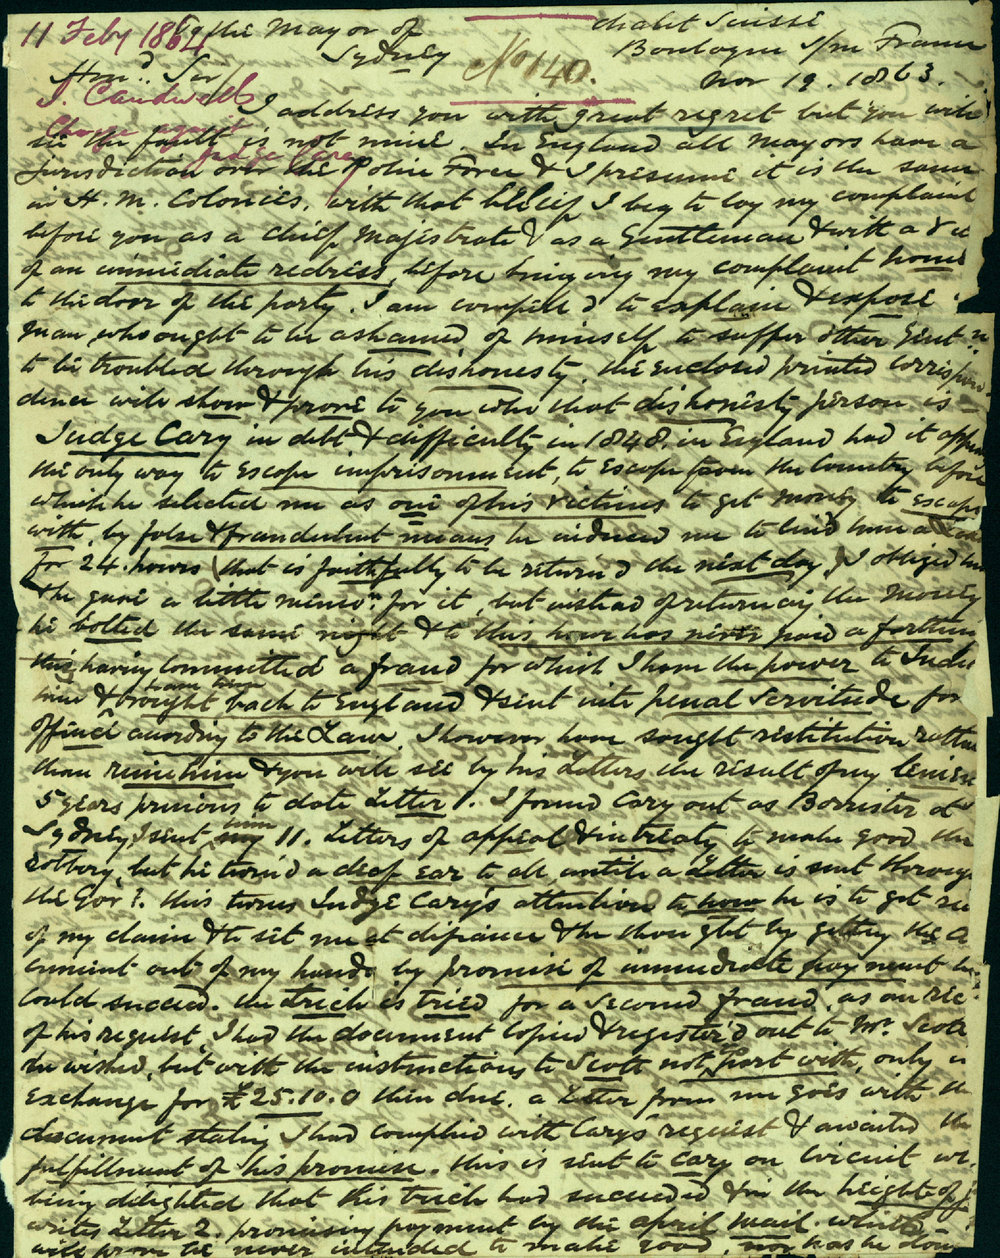 11 Feby 1864
To the Mayor of Sydney
Chalet Suisse
Boulogne S/m France
No 140.
Nov 19. 1863.
Hond. Sir/
J. Caudwells
Charge against
Judge Cary
I address you with great regret but you will
see the fault is not mine. In England all Mayors have a
Jurisdiction over the Police Force & I presume it is the same
in H. M. Colonies, with that belief I beg to lay my complaint
before you as a chief Majistrate & as a Gentleman & with a
of an immediate redress, before bringing my complaint home
to the door of the party. I am compell'd to explain & expose
man who ought to be ashamed of himself to suffer other Gent
to be troubled through his dishonesty, the enclosed printed corrispon
dence will show & prove to you who that dishonesty person is
Judge Cary in debt & difficulty in 1848 in England had it
the only way to escape imprisonment, to escape from the Country before
which he selected me as one of his victims to get money to escape
with, by false & fraudulent means he induced me to lend him a
for 24 hours (that is faithfully to be return'd the next day,) I obliged him
& he gave a little memo. for it, but instead of returning the money
he bolted the same night & to this hour has never paid a farthing
this having Committed a fraud for which I have the power to
have him
& brought back to England & sent into penal servitude for
offence according to the Law. I however have sought restitution rather
than ruin him & you will see by his Letters the result of my
5 years previous to date Letter 1. I found Cary out as Barrister at
Sydney, I sent him 11. Letters of appeal & intreaty to make good the
robbery, but he turn'd a deaf ear to all, until a Letter is sent through
the Govr. this turns Judge Cary's attention to how he is to get
of my claim & to set me at defiance & he thought by getting the
out of my hands by promise of immediate payment he
could succeed. the trick is tried for a second fraud, as on
of his request, I had the document Copied & register'd out to Mr. Scott
he wished, but with the instructions to Scott not to part with, only in
exchange for £25.10.0 then due. a Letter from me goes with the
document stating I had complied with Carys request & awaited the
fulfillment of his promise. this is sent to Cary on Circuit
being delighted that this trick had succeeded & in the height of
writes Letter 2. promising payment by the april mail. which
will prove he never intended to make good, nor has he done